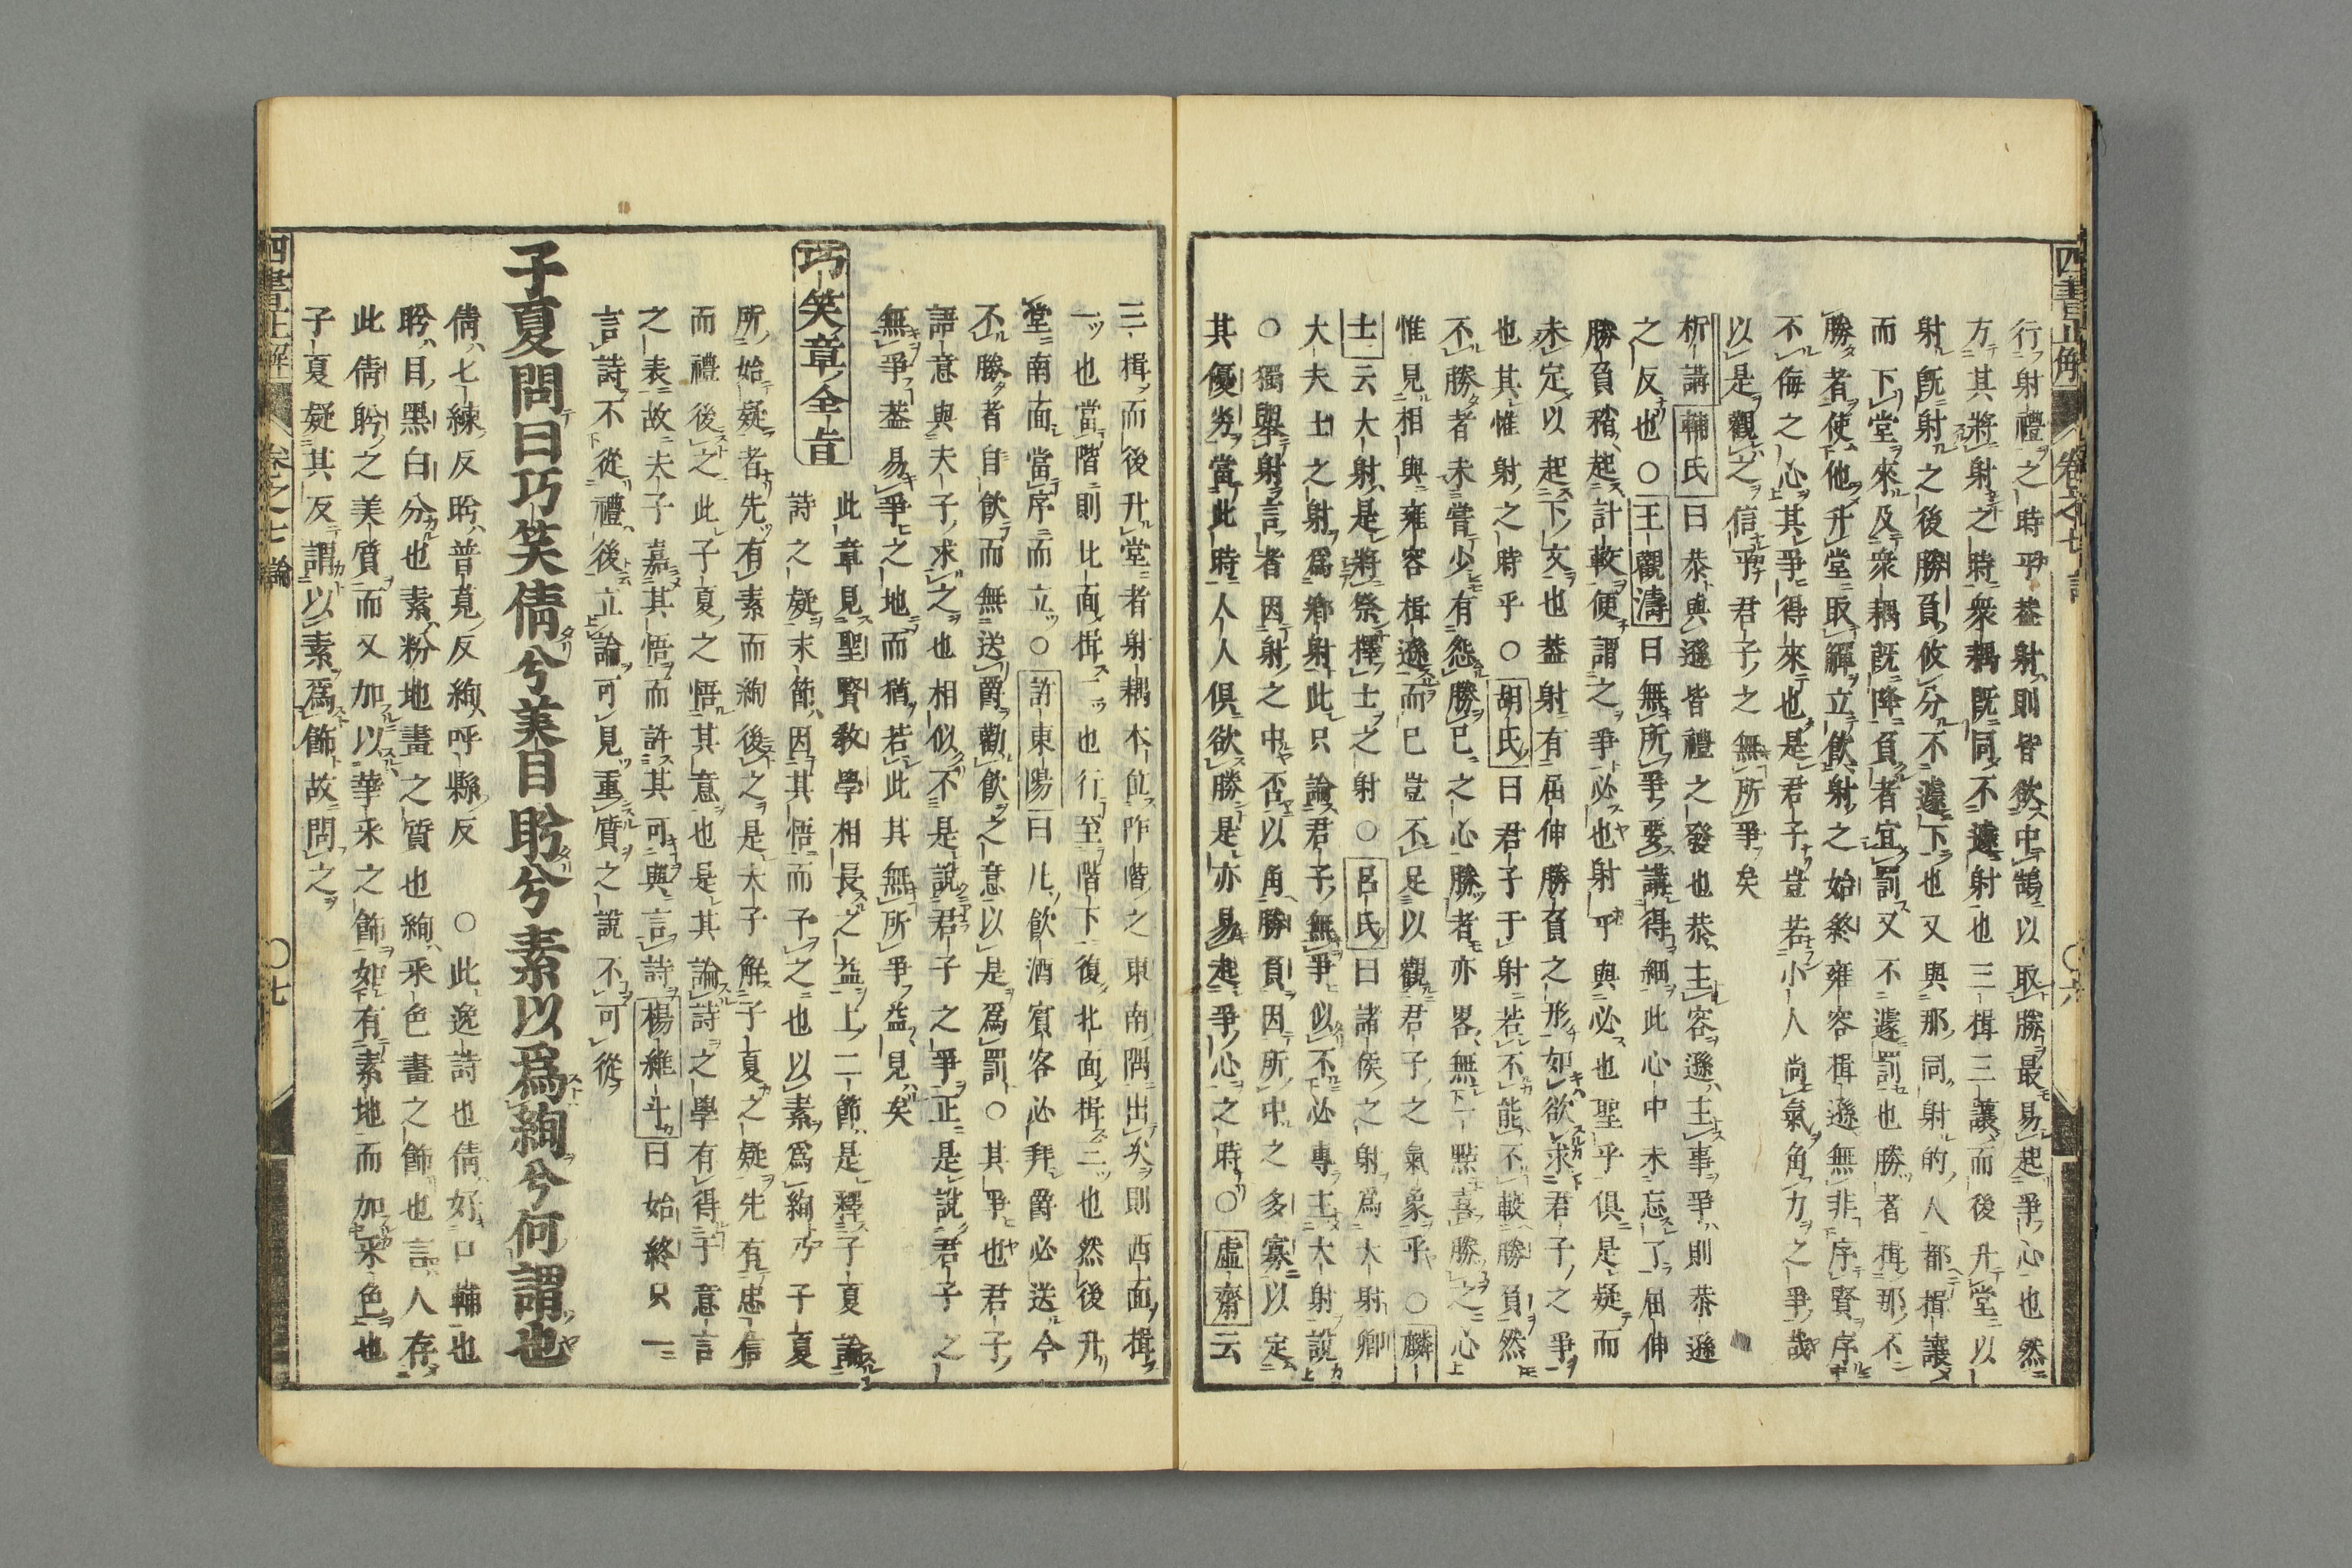 四書正解 卷之七 論 〇六
行射禮之時乎蓋射則皆欲中鵠以取勝最易起爭心也然
方其將射之時衆耦既同不遽射也三揖三讓而後升堂以
射既射之後勝負攸分不遽下也又與那同射的人都揖讓
而下堂來及衆耦既降負者宜罰又不遽罰也勝者揖那不
勝者使他升堂取觶立飲射之始終雍容揖遜無非序賢序
不侮之心其爭得來也是君子豈若小人尚氣角力之爭哉
以是觀之信乎君子之無所爭矣
析講輔氏曰恭與遜皆禮之發也恭主容遜主事爭則恭遜
之反也〇王觀濤曰無所爭要講得細此心中未忘了屈伸
勝負稍起計較便謂之爭必也射乎與必也聖乎俱是疑而
未定以起下文也蓋射有屈伸勝負之形如欲求君子之爭
也其惟射之時乎〇胡氏曰君子于射若不能不較勝負然
不勝者未嘗少有怨勝已之心勝者亦畧無一點喜勝之心
惟見相與雍容揖遜而已豈不足以觀君子之氣象乎〇麟
士云大射是將祭擇士之射〇呂氏曰諸侯之射爲大射卿
大夫士之射爲鄉射此只論君子無爭似不必專主大射說
〇獨舉射言者因射之中否以角勝負因所中之多寡以定
其優劣當此時人人俱欲勝是亦易起爭心之時〇虛齋云
三揖而後升堂者射耦木位阼階之東南隅出次則西面揖
一也當階則北面揖二也行至階下復北面揖三也然後升
堂南面當序而立〇許東陽曰凡飲酒賓客必拜爵必送今
不勝者自飲而無送爵勸飲之意以是爲罰〇其爭也君子
語意與夫子求之也相似不是說君子之爭正是說君子之
無爭蓋易爭之地而猶若此其無所爭益見矣
巧笑章全旨 此章見聖賢敎學相長之益上二節是釋子夏論
詩之疑末節因其悟而予之也以素爲絢乃子夏
所始疑者先有素而絢後之是夫子解子夏之疑先有忠信
而禮後之此子夏之悟其意也是其論詩之學有得于意言
之表故夫子嘉其悟而許其可與言詩楊維斗曰始終只一
言詩不從禮後立論可見重質之說不可從
子夏問曰巧笑倩兮美目盼兮素以爲絢兮何謂也
倩七練反盼普莧反絢呼縣反 〇此逸詩也倩好口輔也
盼目黑白分也素粉地畫之質也絢采色畫之飾也言人存
此倩盼之美質而又加以華采之飾如有素地而加采色也
子夏疑其反謂以素爲飾故問之
四書正解 卷之七 論 〇七